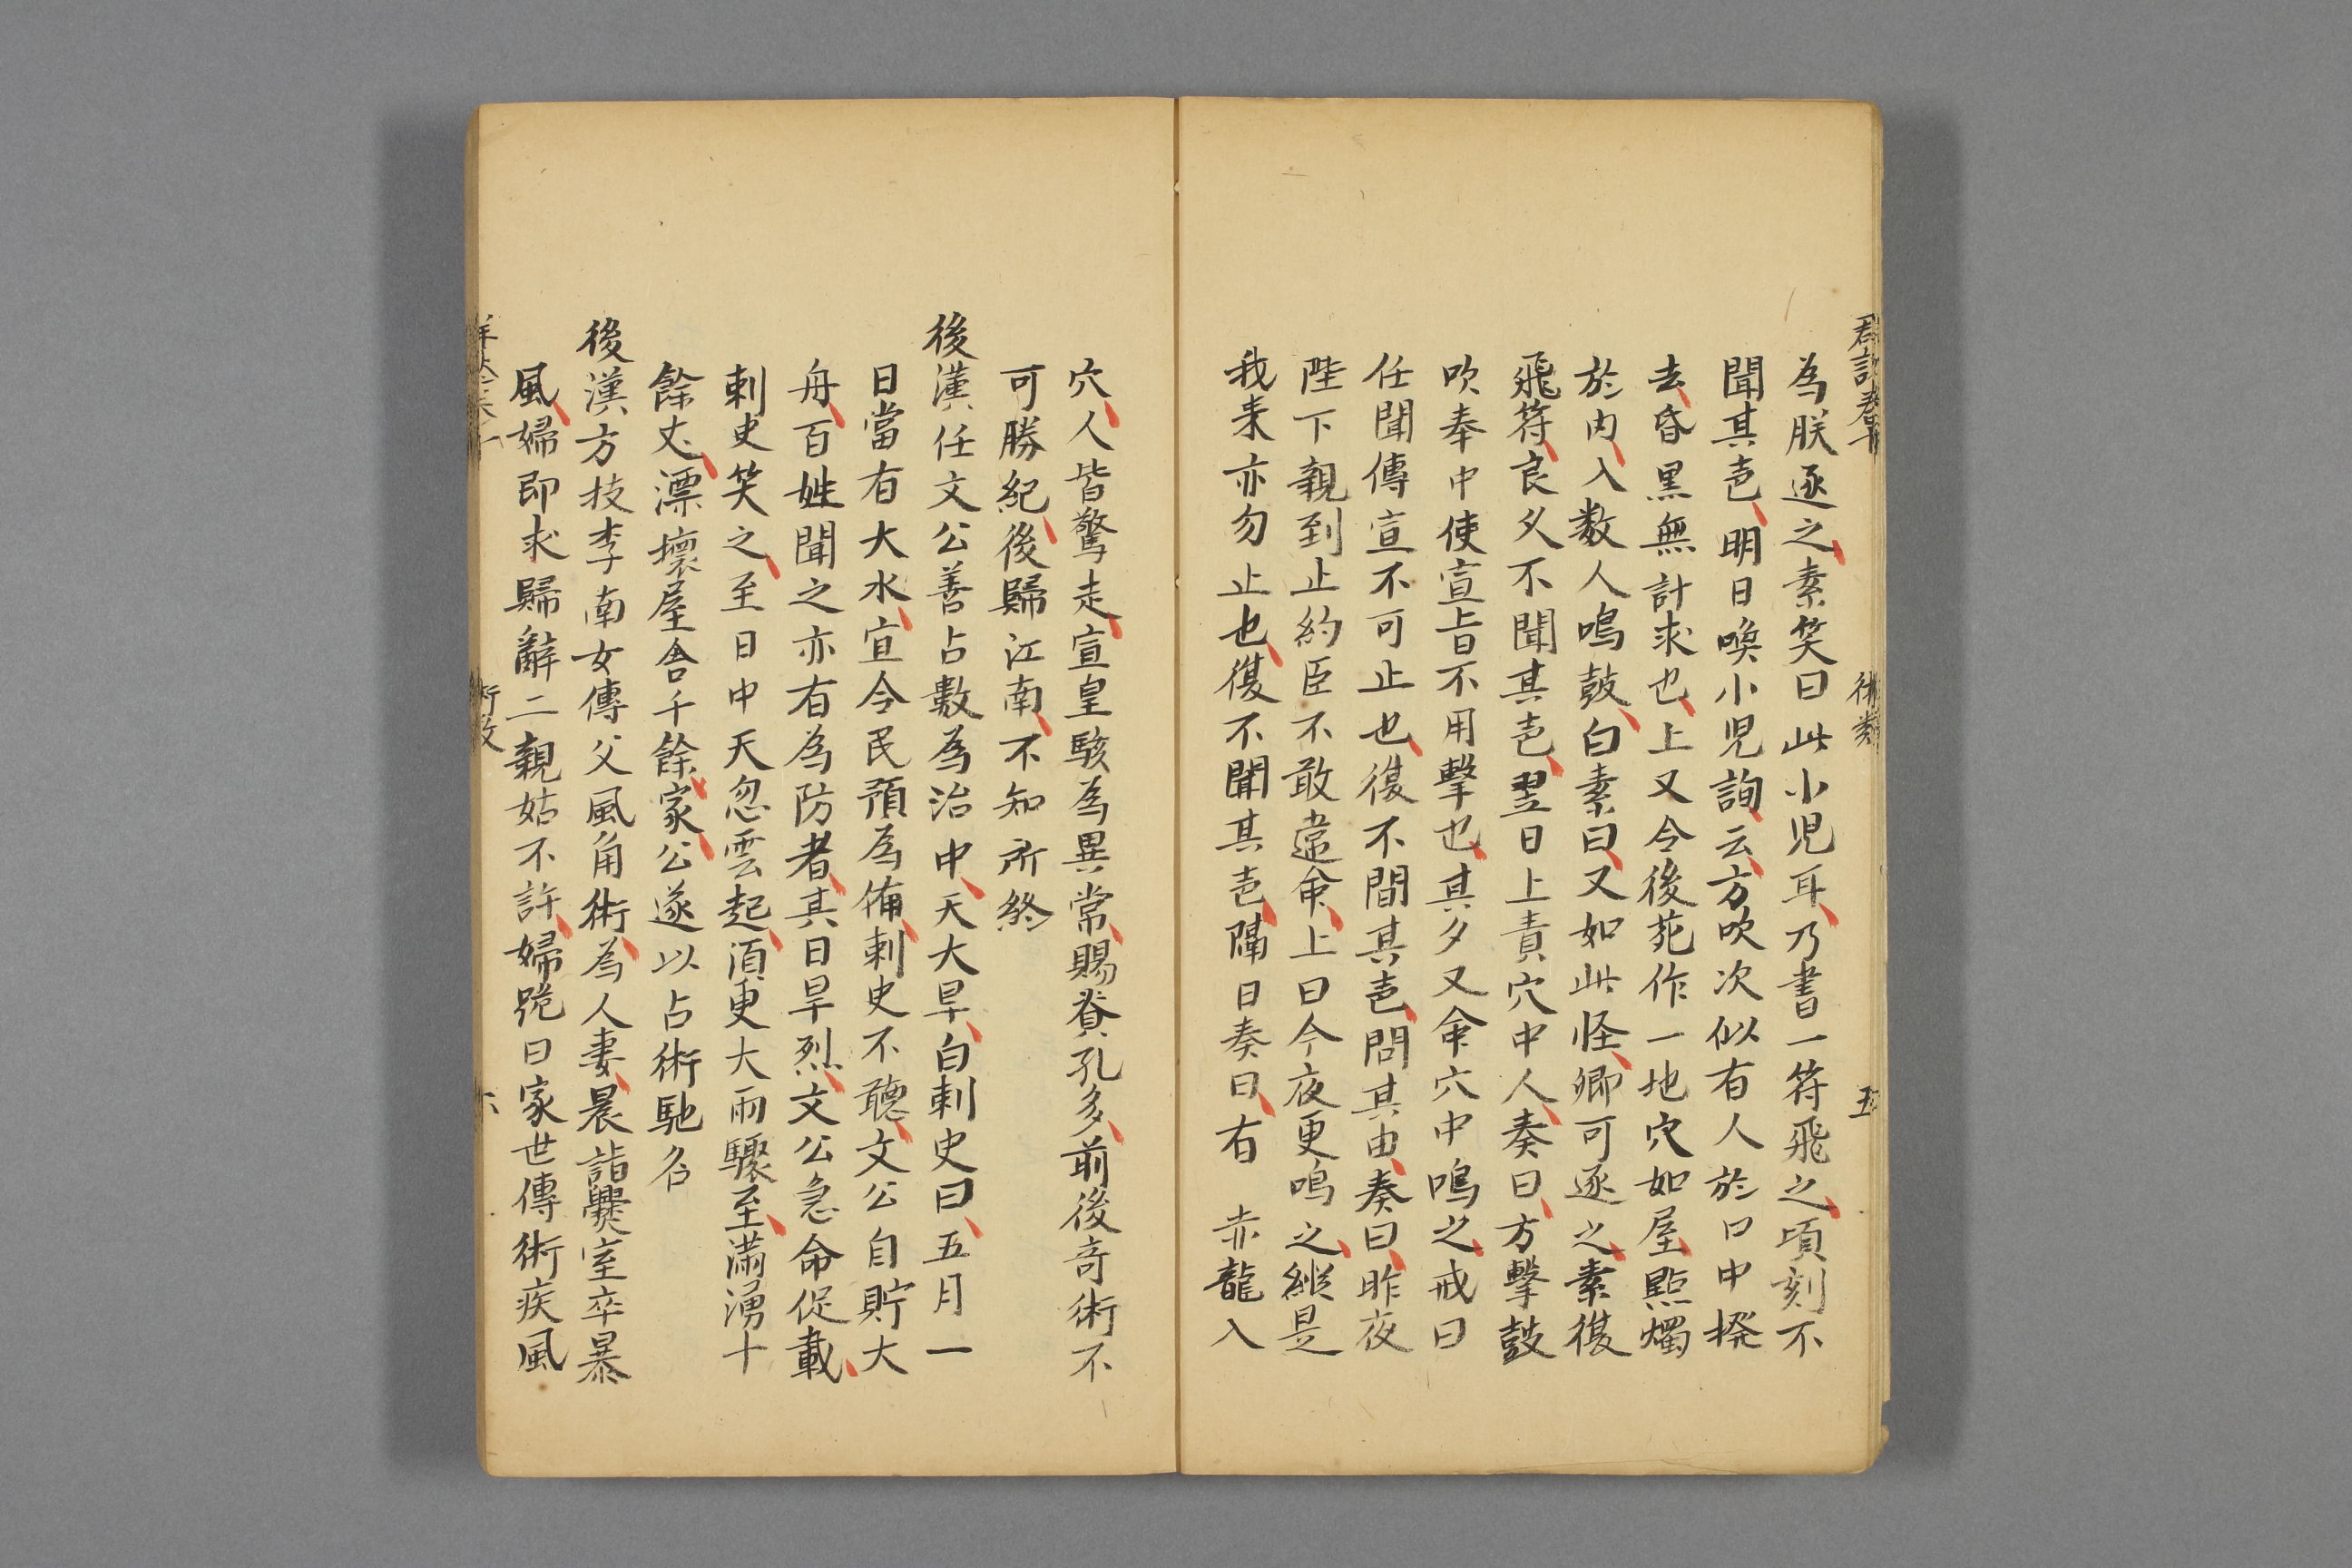 為朕逐之素笑曰此小児耳乃書一符飛之頃刻不
聞其壴明日喚小児詢云方吹次似有人於口中撥
去昏黒無計求也上又令後苑作一地穴如屋點燭
於内入数人鳴鼓白素曰又如此怪卿可逐之素復
飛符良久不聞其壴翌日上責穴中人奏曰方擊鼓
吹奉中使宣旨不用擊也其夕又命穴中鳴之戒曰
任聞傳宣不可止也復不聞其壴問其由奏曰昨夜
陛下親到止約臣不敢違命上曰今夜更鳴之縱是
我来亦勿止也復不聞其壴隔日奏曰有 赤龍入
五
穴人皆驚走宣皇駭為異常賜賚孔多前後奇術不
可勝紀後歸江南不知所終
後漢任文公善占數為治中天大旱白刺史曰五月一
日當有大水宣令民預為備刺史不聽文公自貯大
舟百姓聞之亦有為防者其日旱烈文公急命促載
刺史笑之至日中天忽雲起須更大雨驟至滿湧十
餘丈漂壞屋舎千餘家公遂以占術馳名
後漢方技李南女傳父風角術為人妻晨詣爨室卒暴
風婦即求歸辭二親姑不許婦跪曰家世傳術疾風